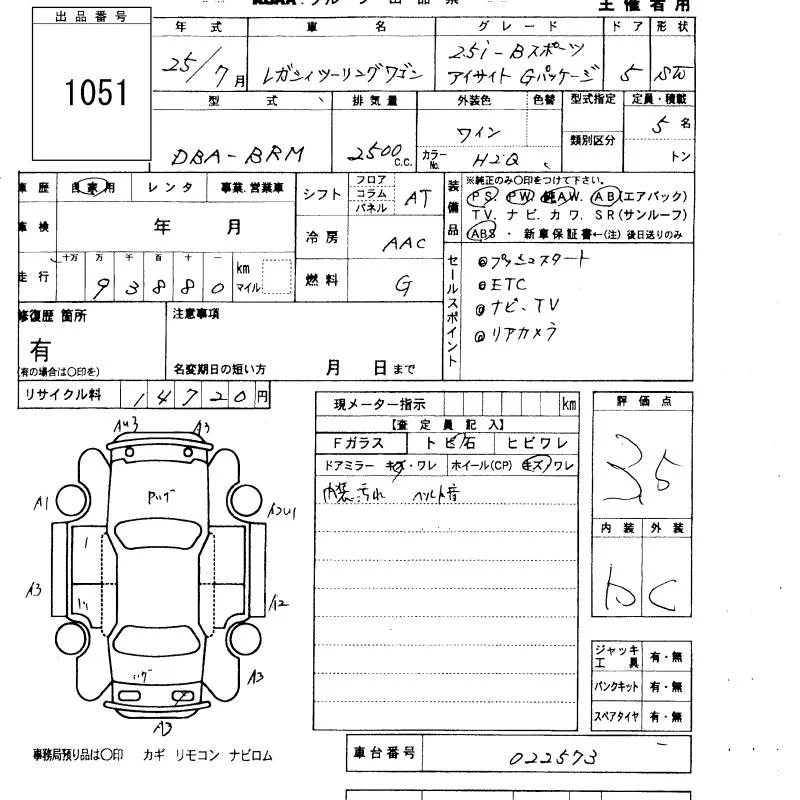 出品番号
1051
主催者用
年式 車名 グレード ドア 形状
25/7月 レガシィツーリングワゴン 25i-Bスポーツ
アイサイト Gパッケージ 5 SW
型式 排気量 外装色 色替 型式指定 定員・積載
DBA-BRM 2500c.c. ワイン 類別区分 5名
カラーNo. H2Q トン
車歴 自家用 レンタ 事業.営業車
車検 年 月
走行 十万 万 千 百 十 一 km マイル
93880
シフト フロア コラム パネル AT
冷房 AAC
燃料 G
装備品
※純正のみ○印をつけて下さい。
PS. PW. 純AW. AB(エアバック)
TV. ナビ. カワ. SR(サンルーフ)
ABS ・ 新車保証書←(注) 後日送りのみ
セールスポイント
◎プッシュスタート
◎ETC
◎ナビ、TV
◎リアカメラ
修復歴 箇所
有
(有の場合は○印を)
注意事項
名変期日の短い方 月 日まで
リサイクル料 14720円
現メーター指示 km
【査定員記入】
Fガラス トビ石 ヒビワレ
ドアミラー キズ・ワレ ホイール(CP) キズ/ワレ
内装汚れ ベルト音
評価点
3.5
内装 外装
D C
AU3 A3
A1
A3
A2
A3
A3
ジャッキ工具 有・無
パンクキット 有・無
スペアタイヤ 有・無
事務局預り品は○印 カギ リモコン ナビロム
車台番号 022573